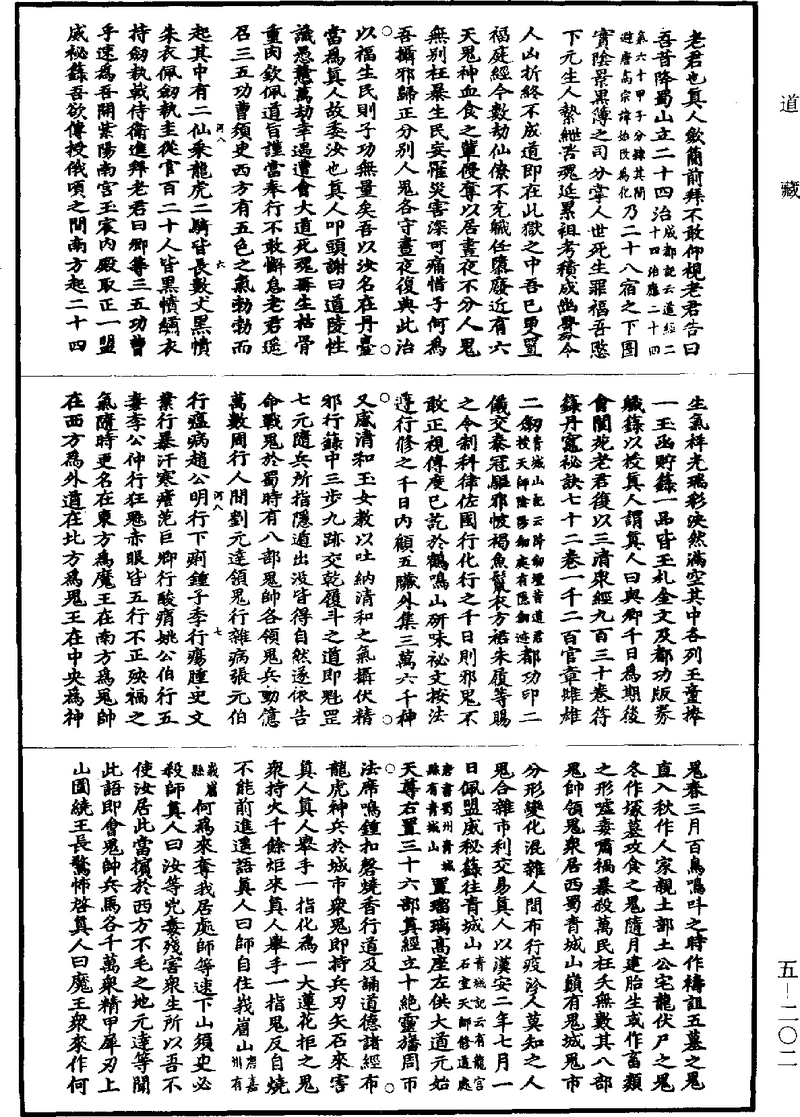 道藏
老君也真人斂簡前拜不敢仰視老君告曰
吾昔降蜀山立二十四治成都記云道經二十四治應二十四
氣六十甲子分隸其間避唐高宗諱治改為化乃二十八宿之下圖
實陰景黑簿之司分掌人世死生罪福吾愍
下元生人縶紲苦魂延累祖考積成幽釁令
人山折終不成道即在此獄之中吾已更置
福庭經今數劫仙僚不充職任隳廢近有六
天鬼神血食之輩侵奪以居晝夜不分人鬼
無別枉暴生民妄罹災害深可痛惜子何為
吾攝邪歸正分別人鬼各守晝夜復興此治
以福生民則子功無量矣吾以汝名在丹臺
當為真人故委汝也真人叩頭謝曰道陵性
識愚憃萬劫幸遇遭會大道死魂再生枯骨
重肉欽佩道旨謹當奉行不敢懈怠老君遂
召三五功曹須臾西方有五色之氣勃勃而
起其中有二仙乘龍虎二騎皆長數丈黑幘
朱衣佩劔執圭從官百二十人皆黑幘緗衣
持劔執戟侍衛進拜老君曰卿等三五功曹
乎速為吾開紫陽南宮玉宸內殿取正一盟
威祕籙吾欲傳授俄頃之間南方起二十四
生氣祥光瑞彩浹然滿空其中各列玉童捧
一玉函貯籙一品皆玉札金文及都功版券
職籙以授真人謂真人曰與卿千日為期後
會閬苑老君復以三清衆經九百三十卷符
籙丹竈祕訣七十二卷一千二百官章雌雄
二劔青城山記云降劔壇昔道君授天師陰陽劔處有隱劔迹都功印二
儀交泰冠驅邪帔褐魚鬣衣方裙朱履等賜
之令制科律佐國行化行之千日則邪鬼不
敢正視傳度已訖於鶴鳴山研味祕文按法
遵行修之千日內顧五臟外集三萬六千神
又感清和玉女教以吐納清和之氣攝伏精
邪行籙中三步九跡交乾履斗之道即魁罡
七元隨兵所指隱遁出沒皆得自然遂依告
命戰鬼於蜀時有八部鬼帥各領鬼兵動億
萬數周行人間劉元達領鬼行雜病張元伯
行瘟病趙公明行下痢鍾子季行瘍腫史文
業行暴汗寒瘧范巨卿行酸痟姚公伯行五
毒李公仲行狂魅赤眼皆五行不正殃禍之
氣隨時更名在東方為魔王在南方為鬼帥
在西方為外道在北方為鬼王在中央為神
鬼春三月百鳥鳴叫之時作禱詛五墓之鬼
直入秋作人家親土部土公宅龍伏尸之鬼
冬作塚墓攻食之鬼隨月建胎生或作畜類
之形噓毒嘯禍暴殺萬民枉夭無數其八部
鬼帥領鬼衆居西蜀青城山巔有鬼城鬼市
分形變化混雜人間布行疫沴人莫知之人
鬼合雜市利交易真人以漢安二年七月一
日佩盟威祕籙往青城山青城記云有龍宮石室天師修道處
唐書蜀州青城縣有青城山置瑠璃高座左供大道元始
天尊右置三十六部真經立十絕靈旛周帀
法席鳴鍾扣磬燒香行道及誦道德諸經布
龍虎神兵於城市衆鬼即持兵刃矢石來害
真人真人舉手一指化為一大蓮花拒之鬼
衆持火千餘炬來真人舉手一指鬼反自燒
不能前進遙語真人曰師自住峩嵋山唐嘉州有
峩嵋縣何為來奪我居處師等速下山須臾必
殺師真人曰汝等兇毒殘害衆生所以吾不
使汝居此當擯於西方不毛之地元達等聞
此語即會鬼帥兵馬各千萬衆精甲犀刃上
山圍繞王長驚怖啓真人曰魔王衆來作何
河八
六
河八
七
五-二〇二